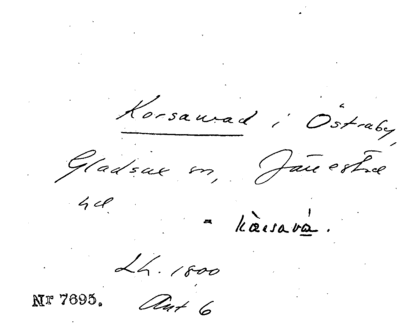 Korsawad i Östraby,
Gladsax sn, Järrestad
hd
= kàrsavá.
Lh. 1800
Ant 6
Nr 7695.